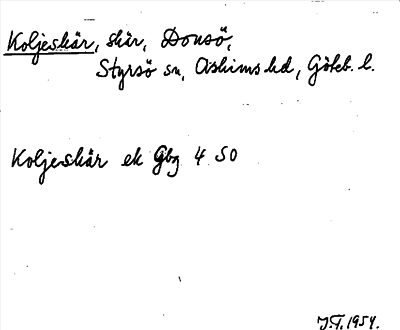 Koljeskär, skär, Donsö,
Styrsö sn, Askims hd, Göteb. l.
Koljeskär ek Gbg 4 SO
J.F. 1954.